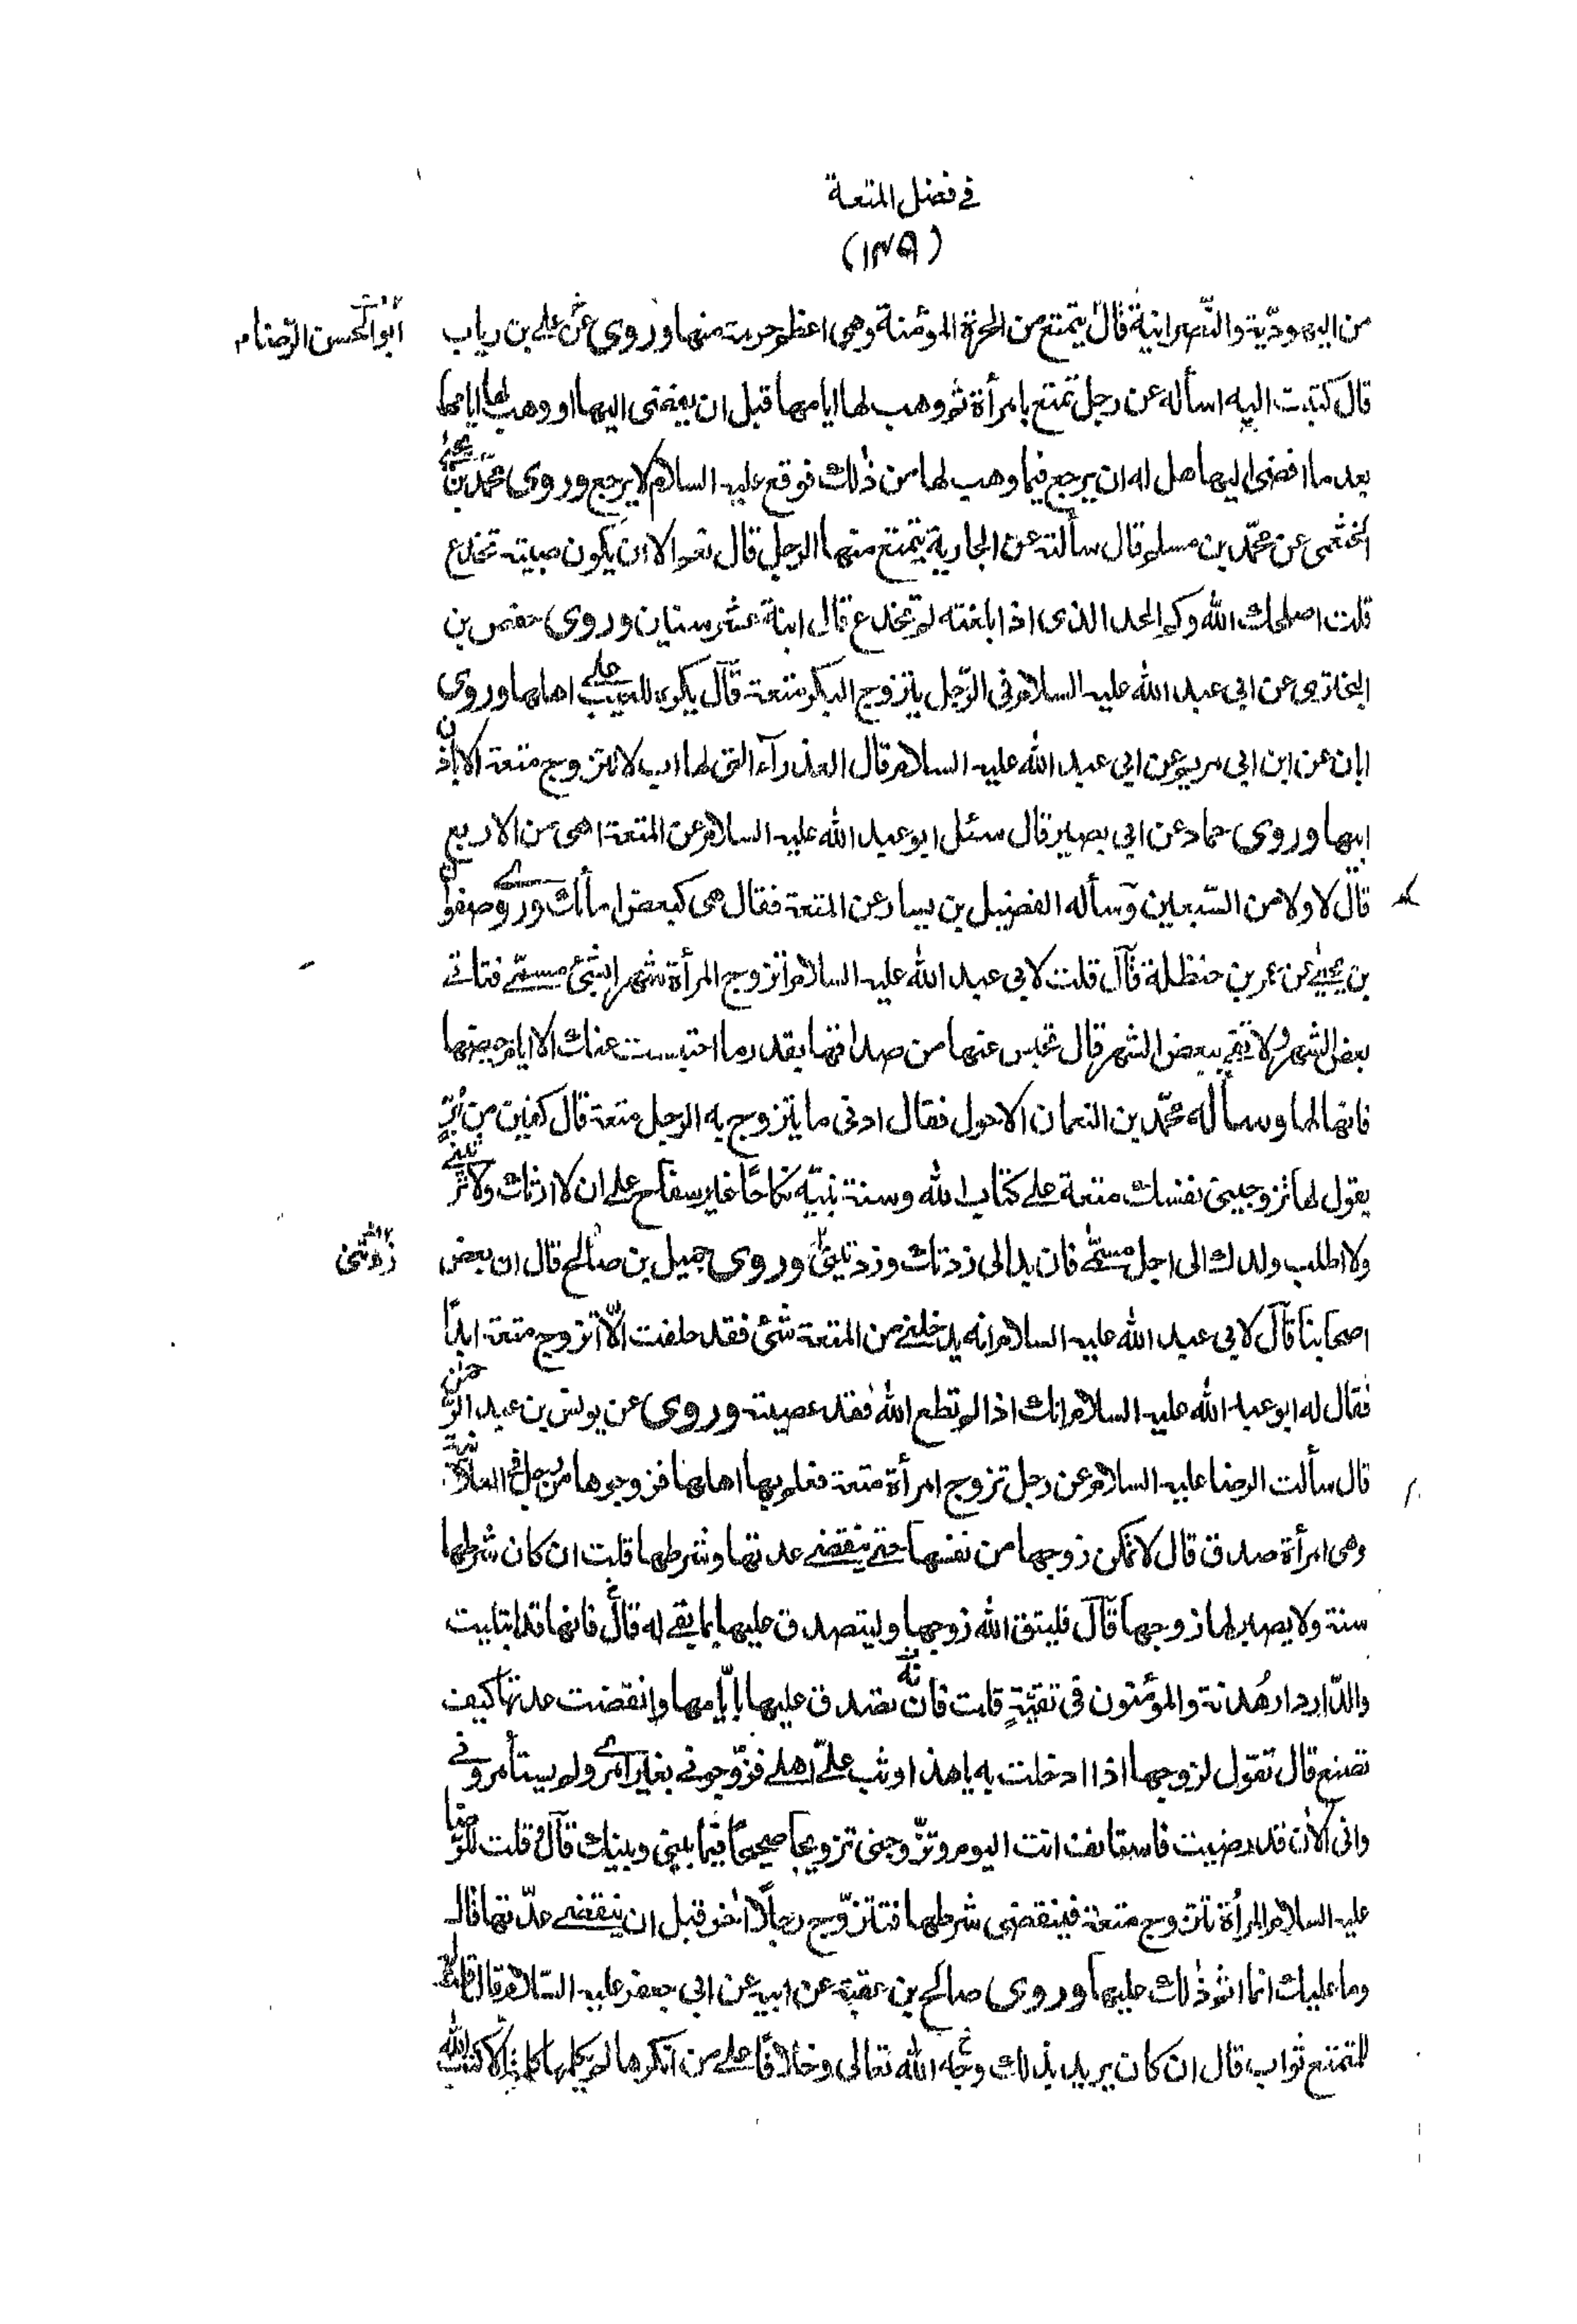 في فضل المتعة
(١٤٩)
من اليهودية والنّصرانية قال يتمتع من الحرة المؤمنة وهي اعظم حرمة منها وروى عن علي بن رياب
ابو الحسن الرّضا م
قال كتبت اليه اسأله عن رجل تمتع بامرأة ثم وهب لها ايامها قبل ان يفضى اليها او وهب لها ايامها
بعد ما افضى اليها هل له ان يرجع فيما وهب لها من ذلك فوقع عليه السلام لا يرجع وروى محمّد بن يحيى
الخثعمى عن محمّد بن مسلم قال سألته عن الجارية يتمتع منها الرجل قال نعم الا ان يكون صبية تخدع
قلت اصلحك الله وكم الحد الذى اذا بلغته لم تخدع قال ابنة عشر سنين وروى حفص بن
البخترى عن ابي عبد الله عليه السلام في الرّجل يتزوج البكر متعة قال يكره للعيب على اهلها وروى
ابان عن ابن ابي مريم عن ابي عبد الله عليه السلام قال العذرآء التى لها اب لا تتزوج متعة الا باذن
ابيها وروى حماد عن ابي بصير قال سئل ابو عبد الله عليه السلام عن المتعة اهى من الاربع
قال لا ولا من السّبعين وسأله الفضيل بن يسار عن المتعة فقال هى كبعض امائك وروى صفوان
بن يحيى عن عمر بن حنظلة قال قلت لابي عبد الله عليه السلام اتزوج المرأة شهرا بشئ مسمّى فتاتى
بعض الشهر ولا تفى ببعض الشهر قال تحبس عنها من صداقها بقدر ما احتبست عنك الا ايام حيضها
فانها لها وسأله محمّد بن النعمان الاحول فقال ادنى ما يتزوج به الرجل متعة قال كفين من بُرّ
يقول لها زوجيني نفسك متعة على كتاب الله وسنة نبيّه نكاحًا غير سفاح على ان لا ارثك ولا ترثينى
ولا اطلب ولدك الى اجل مسمّى فان بدا لى زدتك وزدتينى وروى جميل بن صالح قال ان بعض
زدتنى
اصحابنا قال لابي عبد الله عليه السلام انه يدخلنى من المتعة شئ فقد حلفت الّا اتزوج متعة ابدًا
فقال له ابو عبد الله عليه السلام انك اذا لم تطع الله فقد عصيته وروى عن يونس بن عبد الرّحمن
قال سألت الرضا عليه السلام عن رجل تزوج امرأة متعة فعلم بها اهلها فزوجوها من رجل فى العلانية
وهى امرأة صدق قال لا تمكن زوجها من نفسها حتى ينقضى عدتها وشرطها قلت ان كان شرطها
سنة ولا يصبر لها زوجها قال فليتق الله زوجها وليتصدق عليها بما بقى له قال فانها قد ابتليت
والدّار دار هُدنة والمؤمنون فى تقيّةٍ قلت فانّه تصدق عليها بايّامها وانقضت عدتها كيف
تصنع قال تقول لزوجها اذا ادخلت به يا هذا وثب علىّ اهلى فزوّجونى بغير امرى ولم يستأمرونى
وانى الآن قد رضيت فاستانف انت اليوم وتزّوجنى تزويجا صحيحًا فيما بينى وبينك قال قلت للرّضا
عليه السلام المرأة تتزوج متعة فينقضى شرطها فتتزوّج رجلًا آخر قبل ان ينقضى عدّتها قال
وما عليك انما اثم ذلك عليها وروى صالح بن عقبة عن ابيه عن ابى جعفر عليه السّلام قال قلت
للمتمتع ثواب قال ان كان يريد بذلك وجه الله تعالى وخلافًا على من انكرها لم يكلمها كلمة الا كتب الله